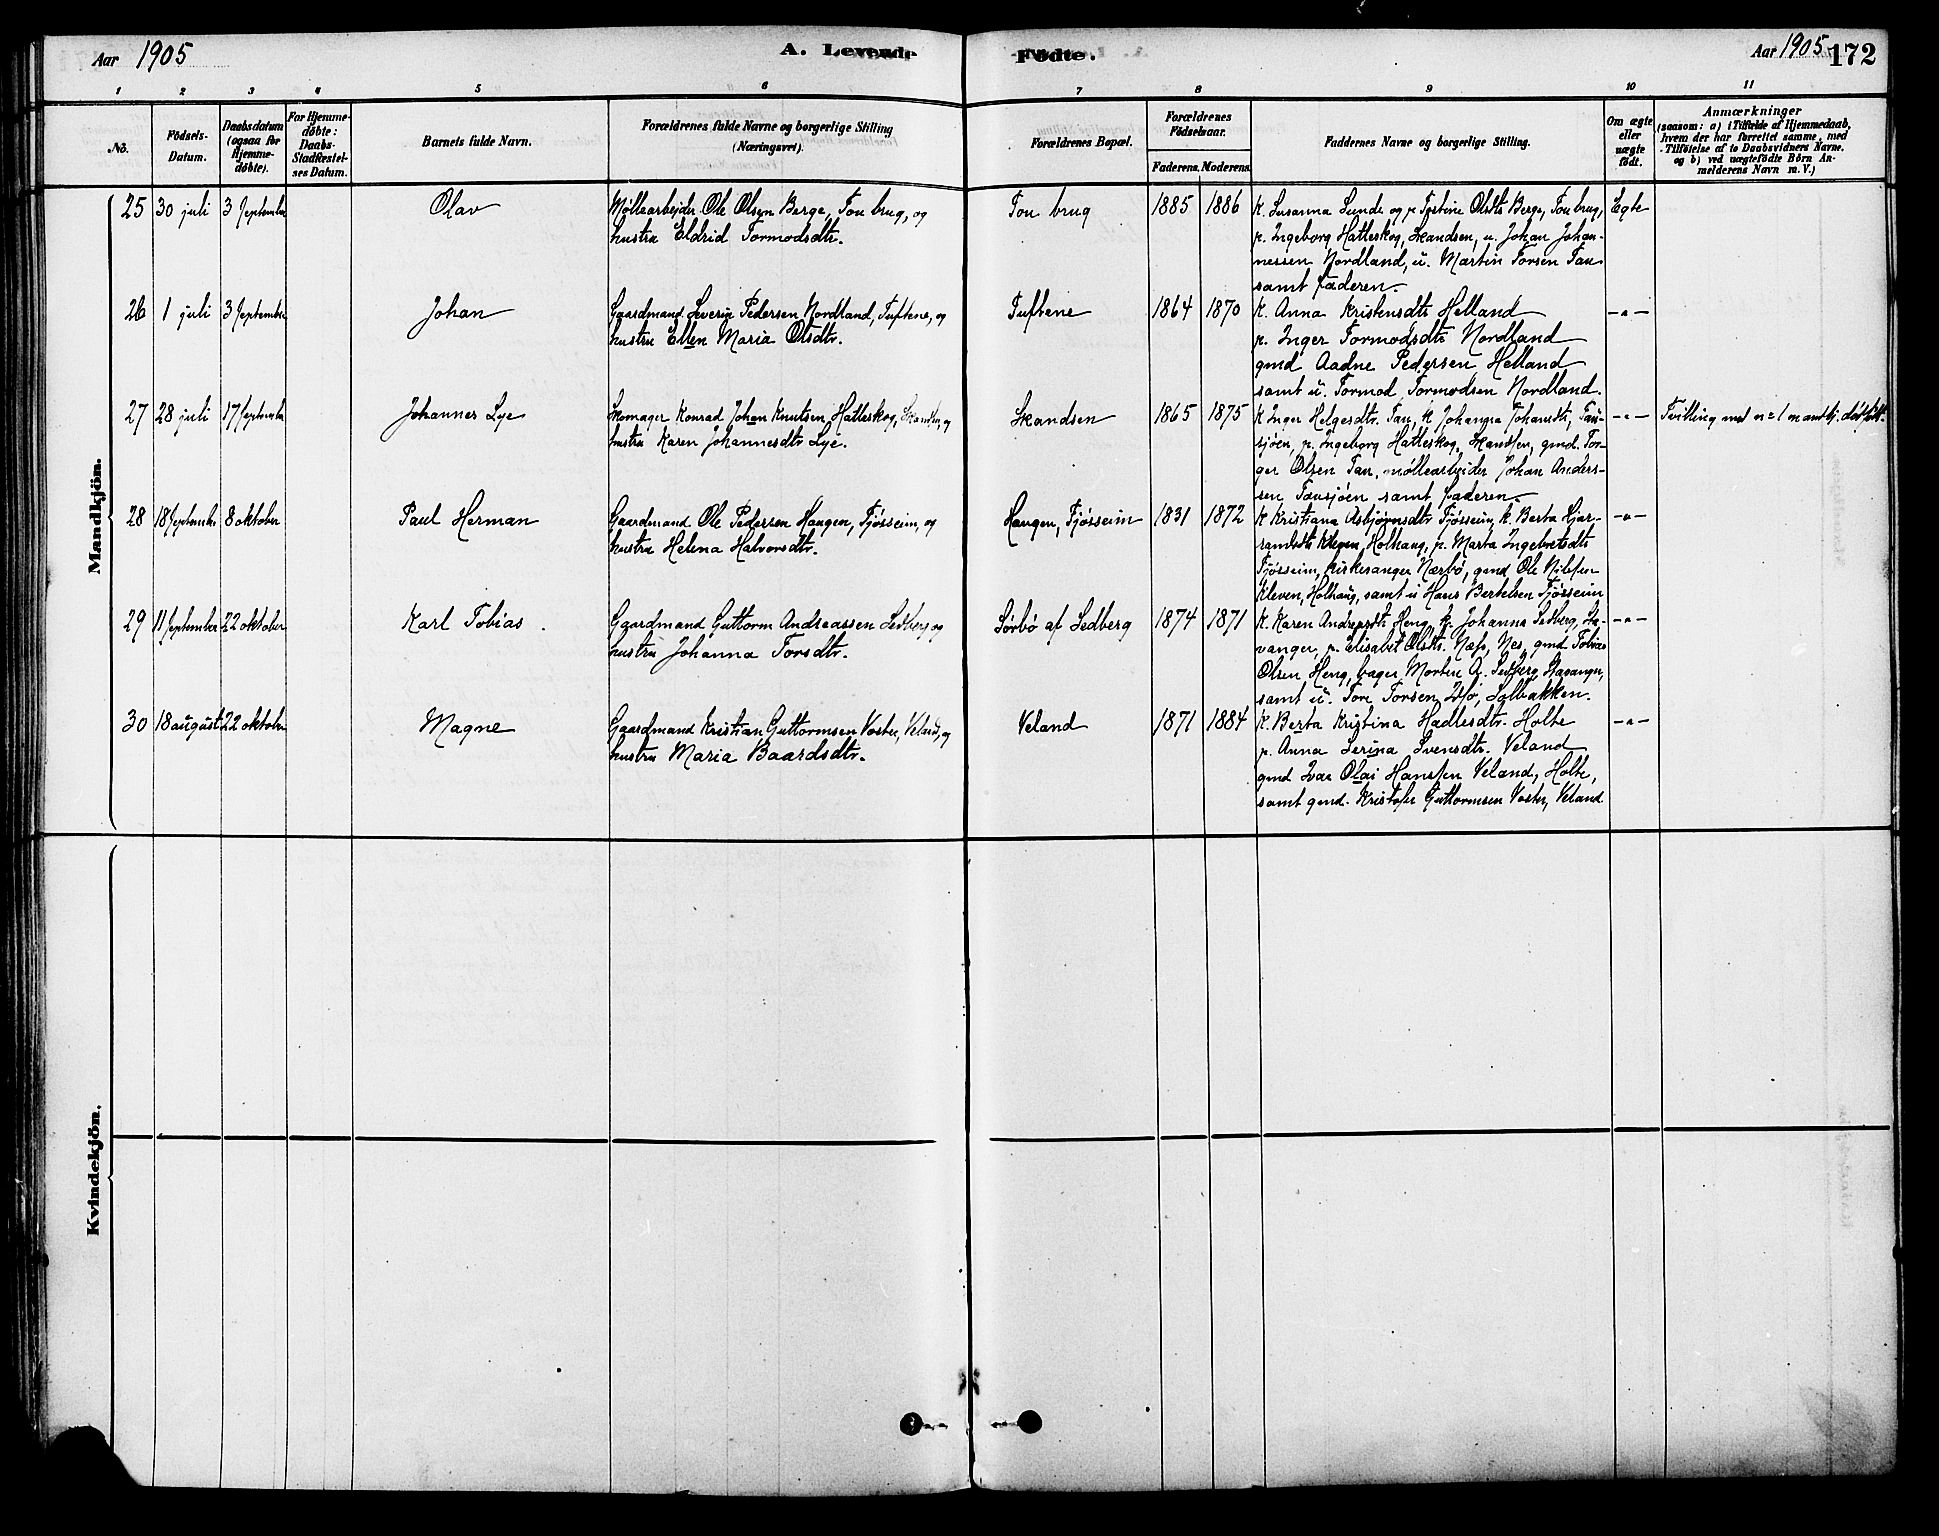 Aar 1905 A. Levende Fødte. Aar 1905 172
1 2 3 4 5 6 7 8 9 10 11
No.
Födsels-
Datum.
Daabsdatum
(ogsaa for
Hjemme-
döbte).
For Hjemme-
döbte:
Daabs-
Stadfæstel-
ses Datum.
Barnets fulde Navn.
Forældrenes fulde Navne og borgerlige Stilling
(Næringsvei).
Forældrenes Bopæl.
Forældrenes
Födselsaar.
Faderens. Moderens.
Faddernes Navne og borgerlige Stilling.
Om ægte
eller
uægte
födt.
Anmærkninger
(saasom: a) i Tilfælde af Hjemmedaab,
hvem der har forrettet samme, med
Tilföielse af to Daabsvidners Navne.
og b) ved uægtefödte Börn An-
melderens Navn m. V.)
Mandkjön.
25 30 juli 3 September Olav
Møllearbejder Ole Olsen Berge, Tou brug, og
hustru Eldrid Tormodsdtr.
Tou brug 1885 1886
K. Susanna Lunde og p. Tostine Olsdtr Berge, Tou brug,
p. Ingeborg Hatleskog, Skandsen, u. Johan Johan-
nessen Nordland, u. Martin Torsen Tau
samt faderen.
Egte
26 1 juli 3 September Johan
Gaardmand Severin Pedersen Nordland, Tuftene, og
hustru Ellen Maria Olsdtr.
Tuftene 1864 1870
K. Anna Kristensdtr Helland
p. Inger Tormodsdtr Nordland
gmd Aadne Pedersen Helland
samt u. Tormod Tormodsen Nordland.
-"-
27 28 juli 17 September Johannes Lye
Skomager Konrad Johan Knutsen Hatleskog, Skandsen, og
hustru Karen Johannesdtr Lye.
Skandsen 1865 1875
K Inger Helgesdtr. Tau, K Johanna Johansdtr, Tau-
sjöen, p. Ingeborg Hatleskog, Skandsen, gmd. Tor-
ger Olsen Tau, møllearbeider Johan Anders-
sen Tausjöen samt faderen.
-"- Tvilling med n = 1 mandkj. dødfödt.
28 18 September 8 oktober Paul Herman
Gaardmand Ole Pedersen Haugen, Fjøsseim, og
hustru Helena Halvorsdtr.
Haugen, Fjøsseim 1831 1872
K Kristiana Asbjørnsdtr Fjøsseim, k. Berta Hjar-
Kleven, Holhaug, p. Marta Ingebretsdtr
Fjøsseim, kirkesanger Nærbø, gmd Ole Nilssen
Kleven, Holhaug, samt u Hans Bertelsen Fjøsseim
-"-
29 11 September 22 oktober Karl Tobias.
Gaardmand Guttorm Andreassen Sedberg og
hustru Johanna Torsdtr.
Sørbö af Sedberg 1874 1871
K. Karen Andreasdtr Heng, k. Johanna Sedberg, Sta-
vanger, p. Elisabet Olsdtr. Næss, Nes, gmd Tobias
Olsen Heng, bager Morten A. Sedberg, Stavanger,
samt u. Tore Torsen, Solbakken.
-"-
30 18 august 22 oktober Magne
Gaardmand Kristian Guttormsen Voster, Veland, og
hustru Maria Baardsdtr.
Veland 1871 1884
K. Berta Kristina Hadlesdtr. Holte
p. Anna Serina Svensdtr. Veland
gmd Ivar Olai Hanssen Veland, Holte,
samt gmd. Kristofer Guttormsen Voster, Veland
-"-
Kvindekjön.